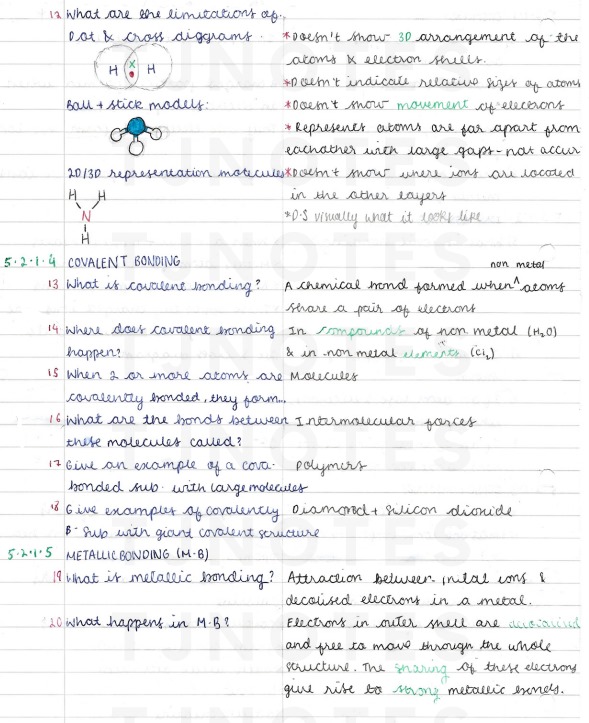 12 What are the limitations of:
Dot & cross diggrams. *Doesn't show 3D arrangement of the
atoms & electron shells.
H x H
*Doesn't indicate relative sizes of atoms
Ball + stick models: *Doesn't show movement of electrons
*Represents atoms are far apart from
eachother with large gaps - not accur
2D/3D representation molecules *Doesn't show where ions are located
in the other layers
H H
*D.S visually what it looks like
N
H
5.2.1.4 COVALENT BONDING
non metal
13 What is covalent bonding? A chemical bond formed when ^ atoms
share a pair of electrons
14 Where does covalent bonding In compounds of non metal (H₂O)
happen? & in non metal elements (Cl₂)
15 When 2 or more atoms are Molecules
covalently bonded, they form...
16 What are the bonds between Intermolecular forces
these molecules called?
17 Give an example of a cova- Polymers
bonded sub. with large molecules
18 Give examples of covalently Diamond + Silicon dioxide
B- Sub with giant covalent structure
5.2.1.5 METALLIC BONDING (M.B)
19 What is metallic bonding? Attraction between metal ions &
decolised electrons in a metal.
20 What happens in M.B? Electrons in outer shell are
and free to move through the whole
structure. The sharing of these electrons
give rise to strong metallic bonds.
TJNOTES
TJNOTES
TJNOTES
TJNOTES
TJNOTES
TJNOTES